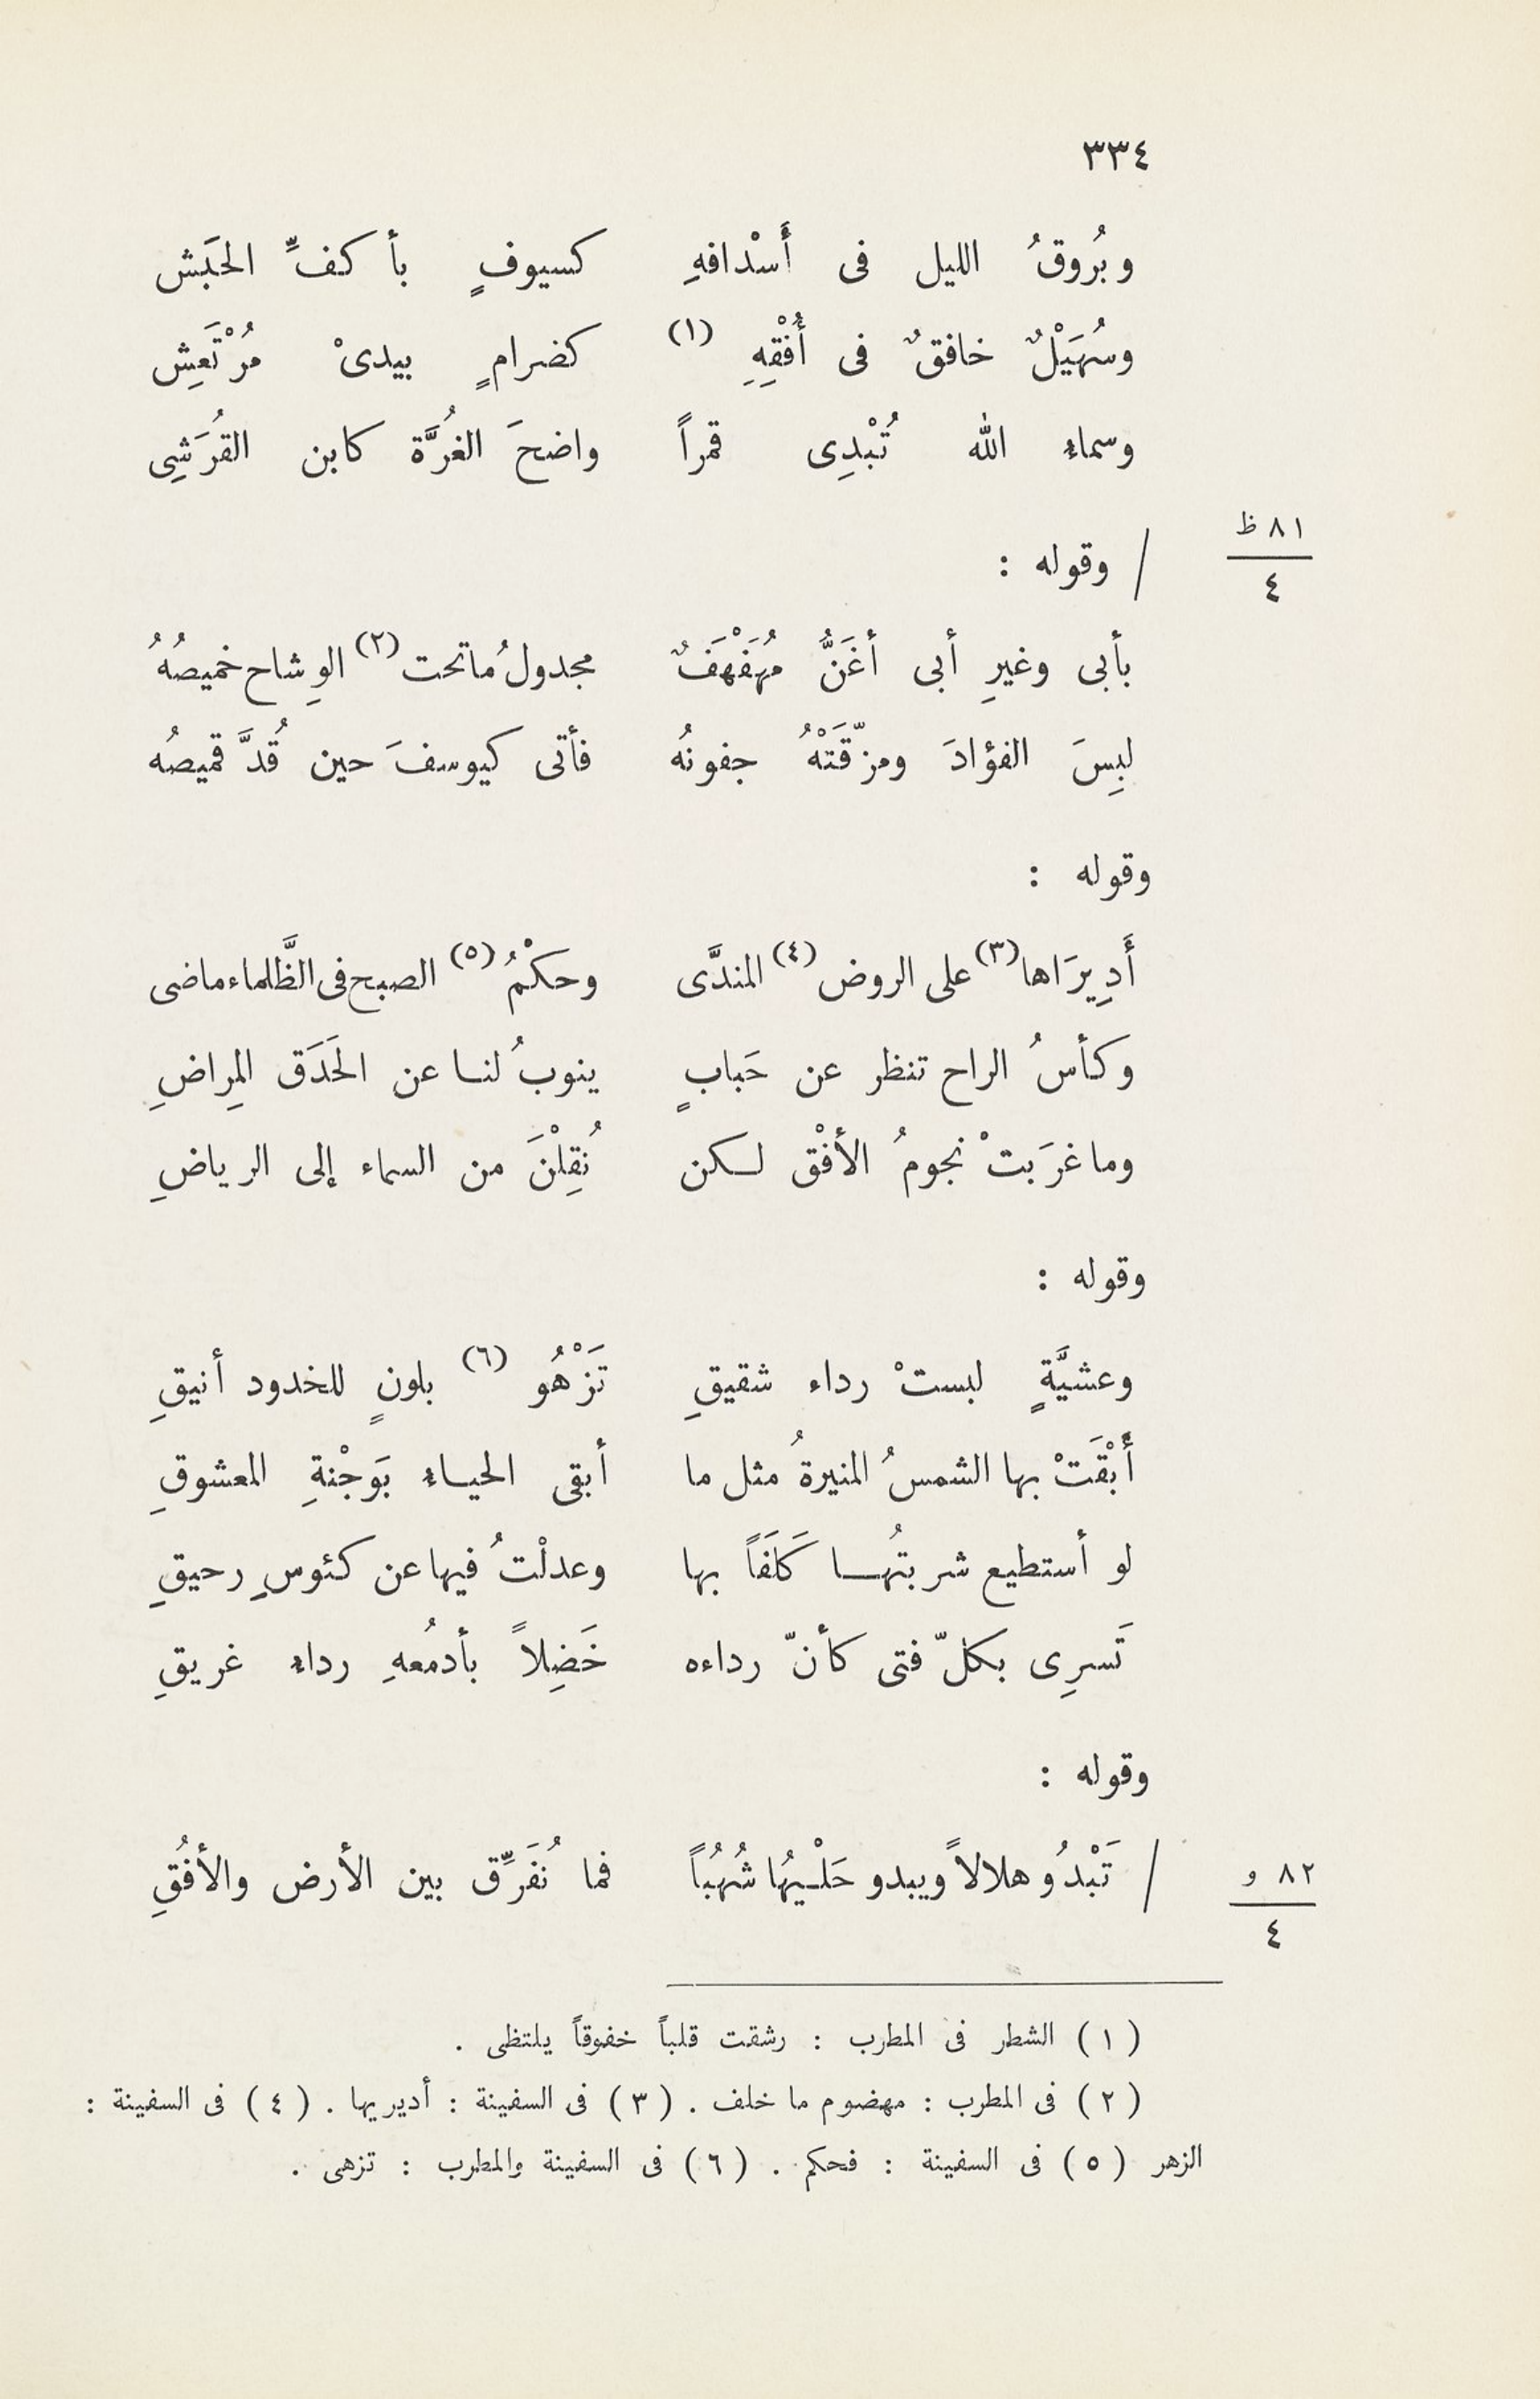 ٣٣٤
وبُروقُ الليل فى أَسْدافهِ كسيوفٍ بأكفِّ الحَبَش
وسُهَيْلٌ خافقٌ فى أُفْقِهِ (١) كضرامٍ بيدىْ مُرْتَعِش
وسماء الله تُبْدِى قمراً واضحَ الغُرَّة كابن القُرَشِى
٨١ ظ
٤
/ وقوله :
بأبى وغيرِ أبى أغَنَّ مُهَفْهَفٌ مجدولُ ماتحت (٢) الوِشاح خميصُهُ
لبِسَ الفؤادَ ومزّقَتْهُ جفونُه فأتى كيوسفَ حين قُدَّ قميصُه
وقوله :
أَدِيرَاها (٣) على الروض (٤) المندَّى وحكْمُ (٥) الصبح فى الظَّلماء ماضى
وكأسُ الراح تنظر عن حَبابٍ ينوبُ لنا عن الحَدَق المِراضِ
وما غرَبتْ نجومُ الأفْق لكن نُقِلْنَ من السماء إلى الرياضِ
وقوله :
وعشيَّةٍ لبستْ رداء شقيقِ تَزْهُو (٦) بلونٍ للخدود أنيقِ
أَبْقَتْ بها الشمسُ المنيرةُ مثل ما أبقى الحياء بَوَجْنةِ المعشوقِ
لو أستطيع شربتُها كَلَفَاً بها وعدلْتُ فيها عن كئوسِ رحيقِ
تَسرِى بكلّ فتى كأنّ رداءه خَضِلاً بأدمُعهِ رداء غريقِ
وقوله :
/ تَبْدُو هلالاً ويبدو حَلْيُها شُهُبَاً فما نُفَرِّق بين الأرض والأفُقِ
٨٢ و
٤
(١) الشطر فى المطرب : رشقت قلباً خفوقاً يلتظى .
(٢) فى المطرب : مهضوم ما خلف . (٣) فى السفينة : أديريها . (٤) فى السفينة :
الزهر (٥) فى السفينة : فحكم . (٦) فى السفينة والمطرب : تزهى .